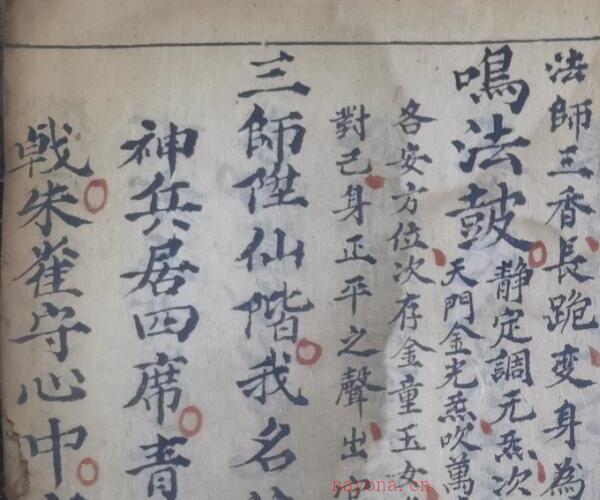 法師三香長跪变身為
鳴法鼓
静定調元炁次
天門金光炁吹萬
各安方位次存金童玉女
對己身正平之聲出
三師陞仙階我名
神兵居四席青
戟朱雀守心中
nayona.cn